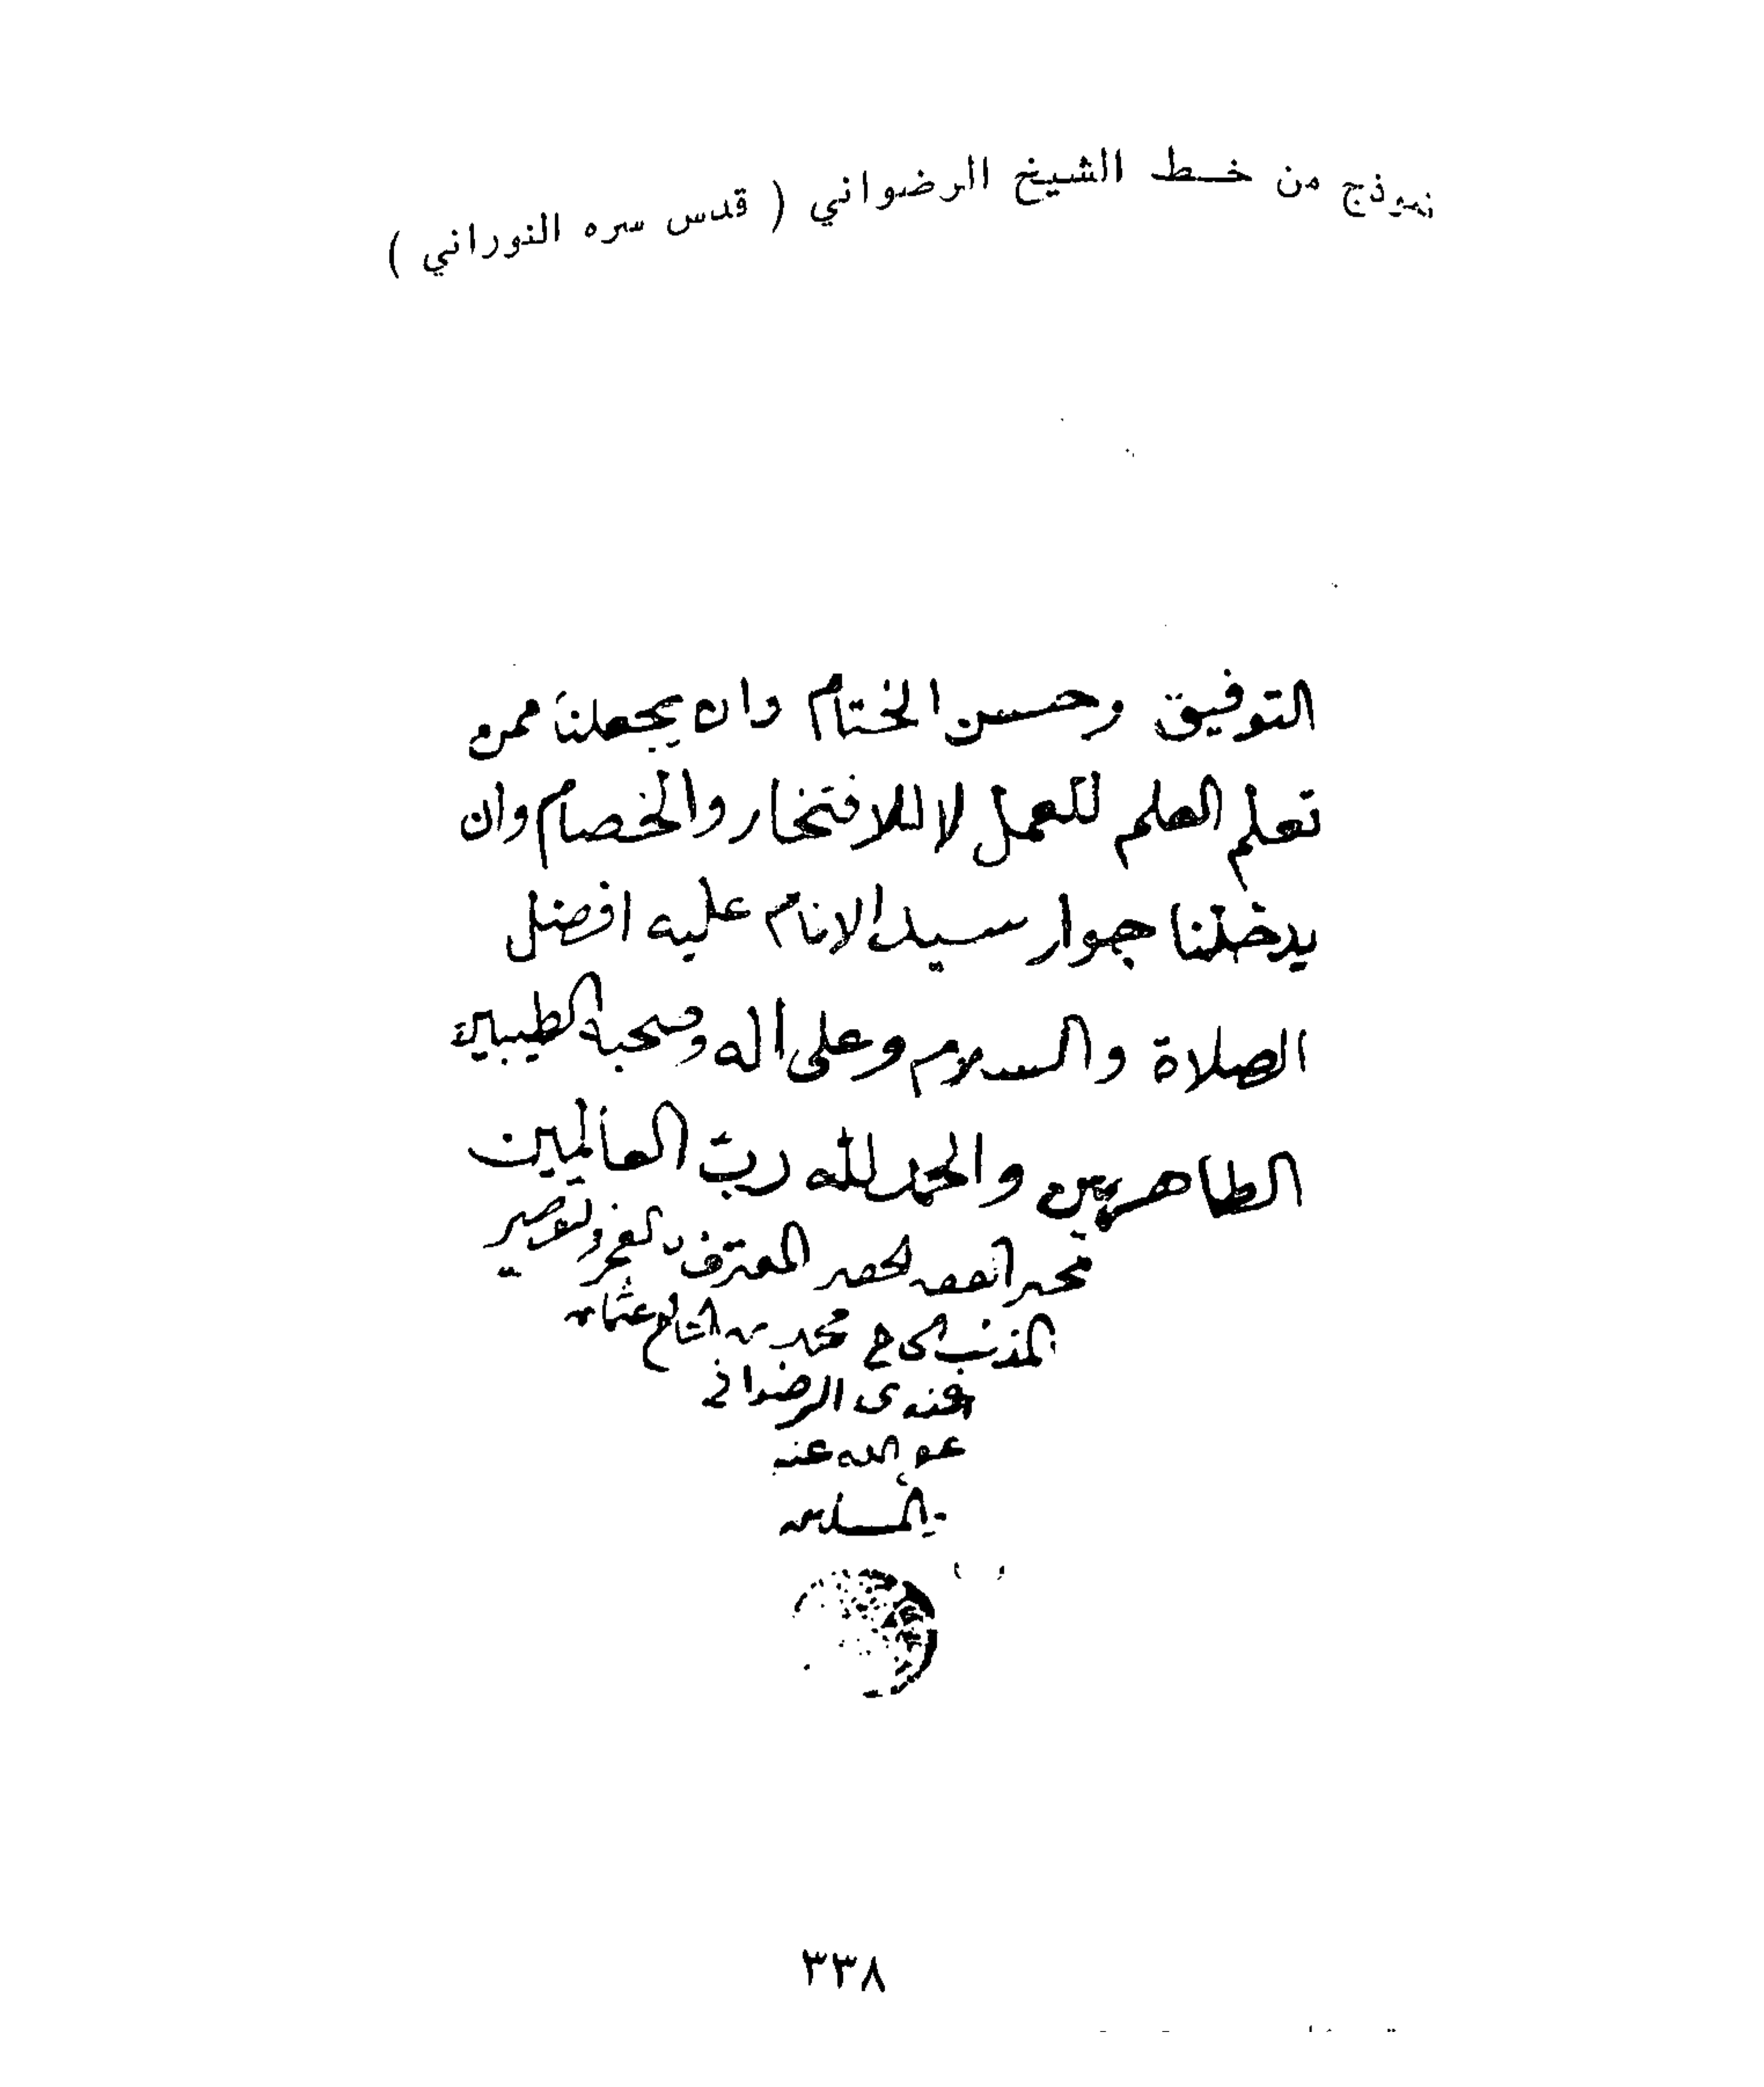 نموذج من خط الشيخ الرضواني ( قدس سره النوراني )
التوفيق وحسن الختام وان يجعلنا ممن
تعلم العلم للعمل لا للافتخار والخصام وان
يدخلنا جوار سيد الانام عليه افضل
الصلاة والسلام وعلى اله وصحبه الطيبين
الطاهرين والحمد لله رب العالمين
الفقير الحقير المعترف بالعجز والتقصير
المذنب الحاج محمد بن الحاج عثمان
افندى الرضواني
عفى الله عنه
المسلمين
٣٣٨